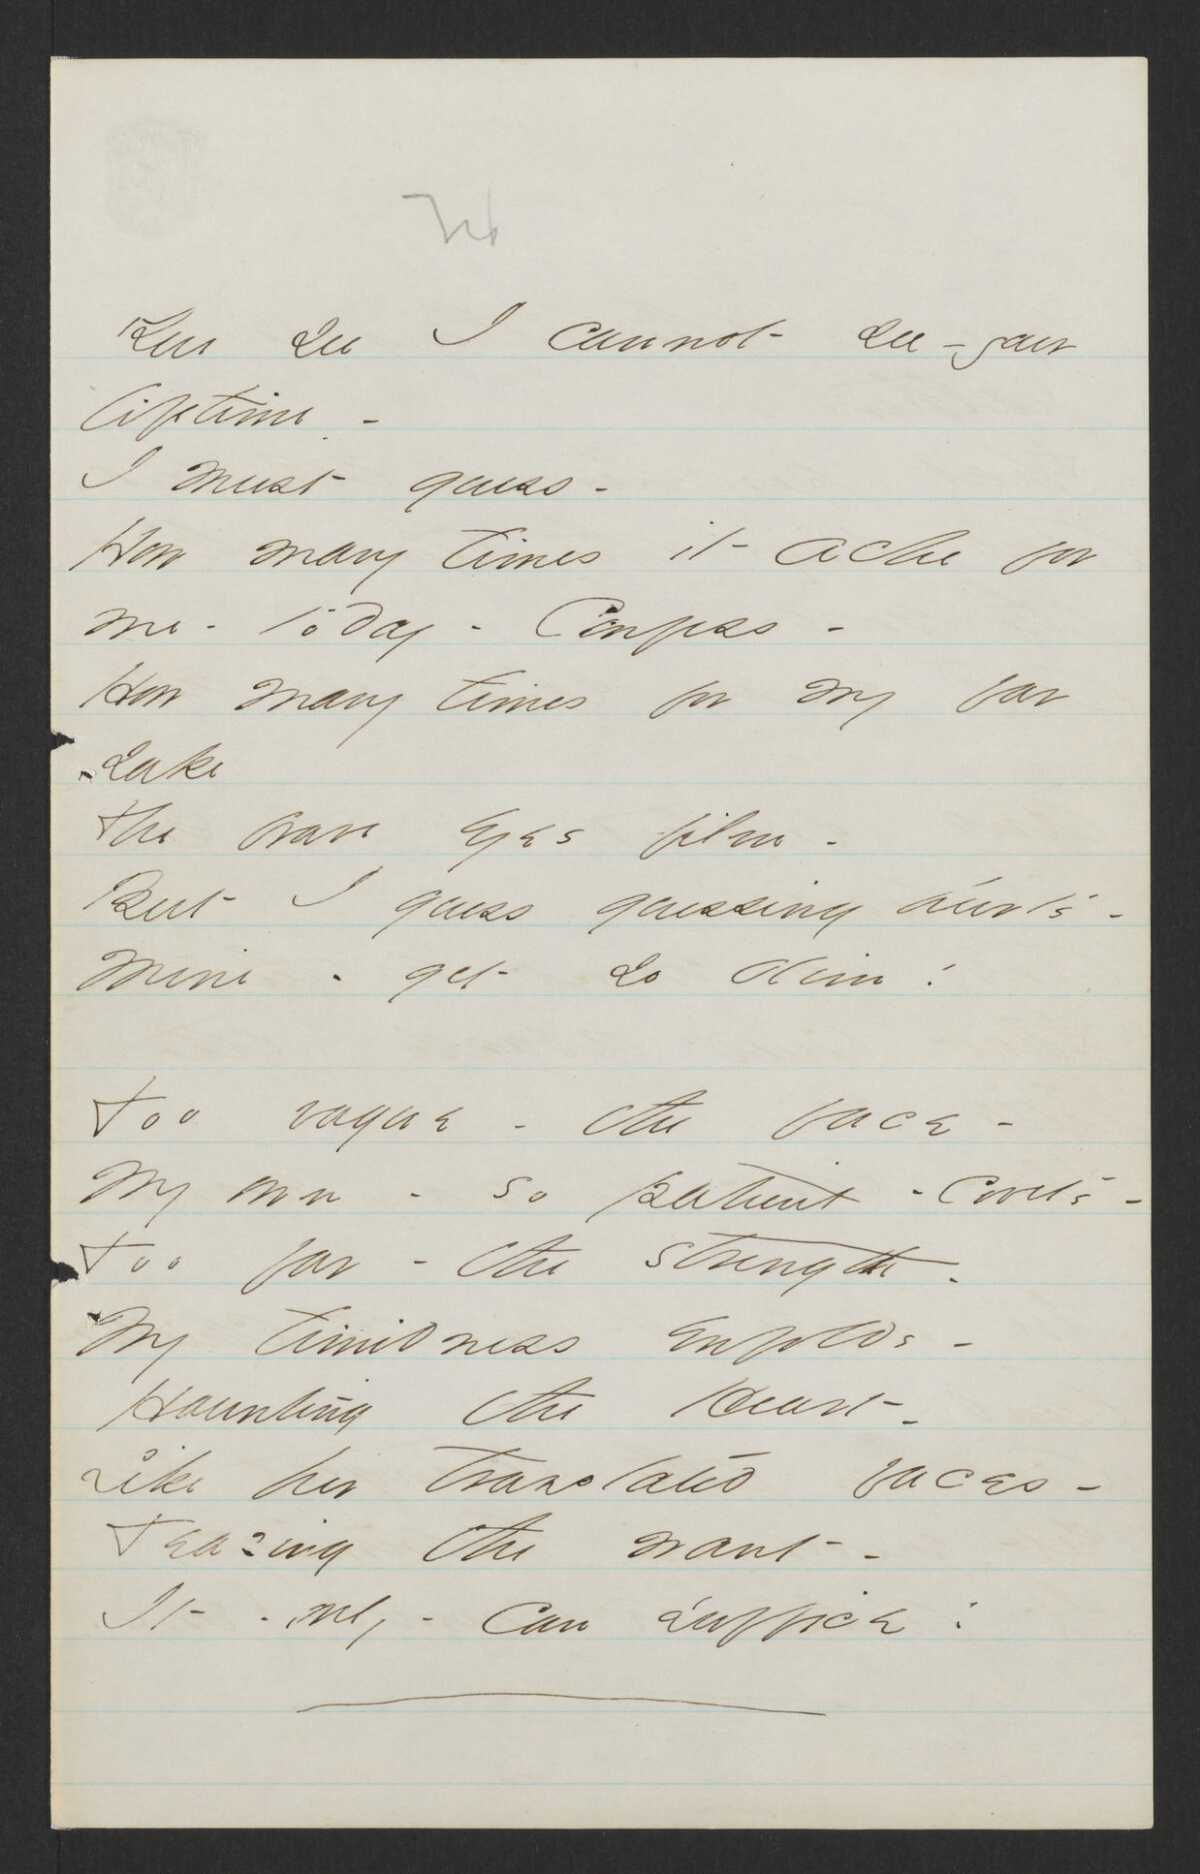 But see I cannot see - your
lifetime -
I must guess -
How many times it ache for
me - today - Confess -
How many times for my far
sake
The brave Eyes film -
But I guess guessing hurts -
Mine - get so dim!
Too vague - the face -
My own - so patient - Covets -
Too far - the strength -
My timidness enfolds -
Haunting the Heart -
Like her translated faces -
Teazing the want -
It - only - can suffice!